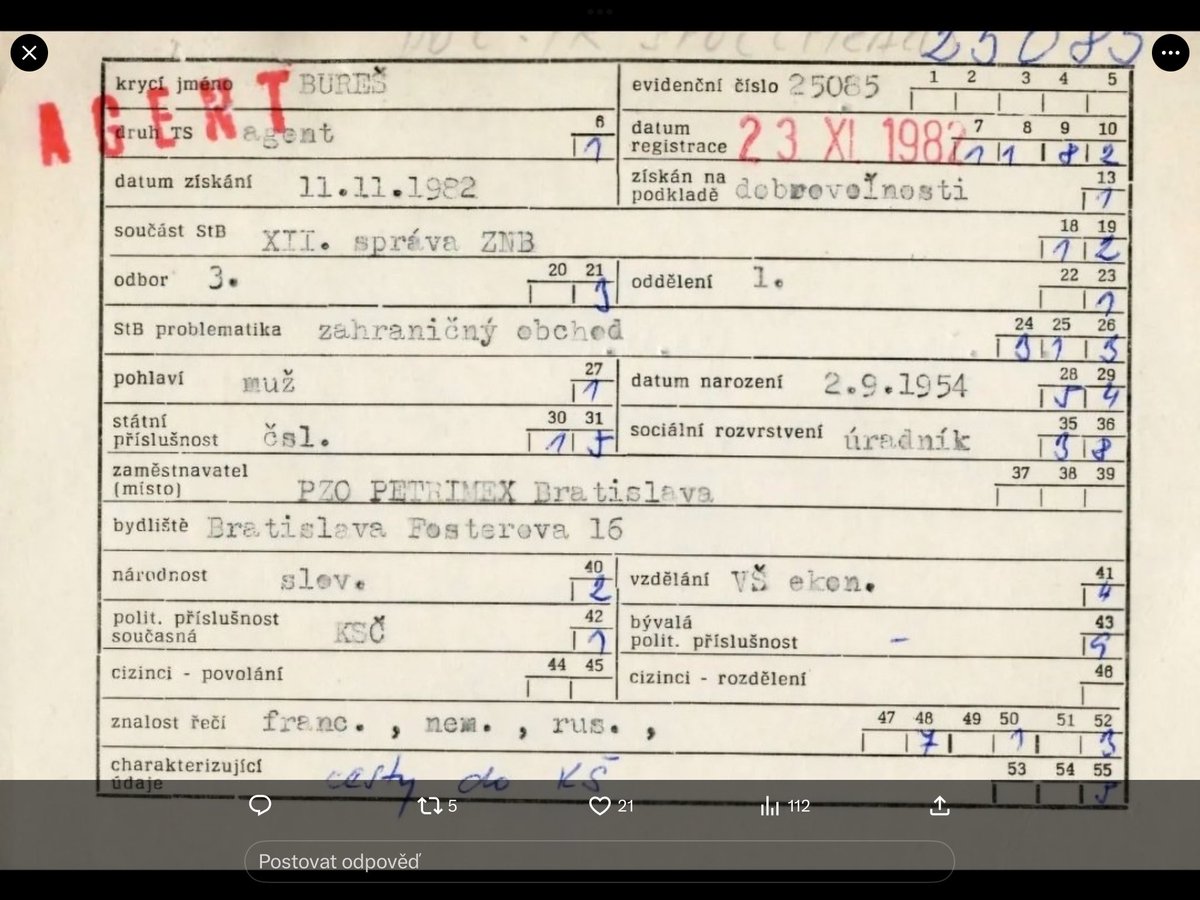 25085
krycí jméno BUREŠ evidenční číslo 25085 1 2 3 4 5
AGENT
druh TS agent 6 1 datum registrace 23 XI. 1982 7 8 9 10 1 1 8 2
datum získání 11.11.1982 získán na podkladě dobrovolnosti 13 1
součást StB XII. správa ZNB 18 19 1 2
odbor 3. 20 21 3 oddělení 1. 22 23 1
StB problematika zahraničný obchod 24 25 26 3 1 3
pohlaví muž 27 1 datum narození 2.9.1954 28 29 5 4
státní příslušnost čsl. 30 31 1 5 sociální rozvrstvení úradník 35 36 3 8
zaměstnavatel (místo) PZO PETRIMEX Bratislava 37 38 39
bydliště Bratislava Fosterova 16
národnost slov. 40 2 vzdělání VŠ ekon. 41 4
polit. příslušnost současná KSČ 42 1 bývalá polit. příslušnost - 43 9
cizinci - povolání 44 45 cizinci - rozdělení 46
znalost řečí franc. , nem. , rus. , 47 48 49 50 51 52 7 1 3
charakterizující údaje cesty do KŠ 53 54 55 5
5 21 112
Postovat odpověď